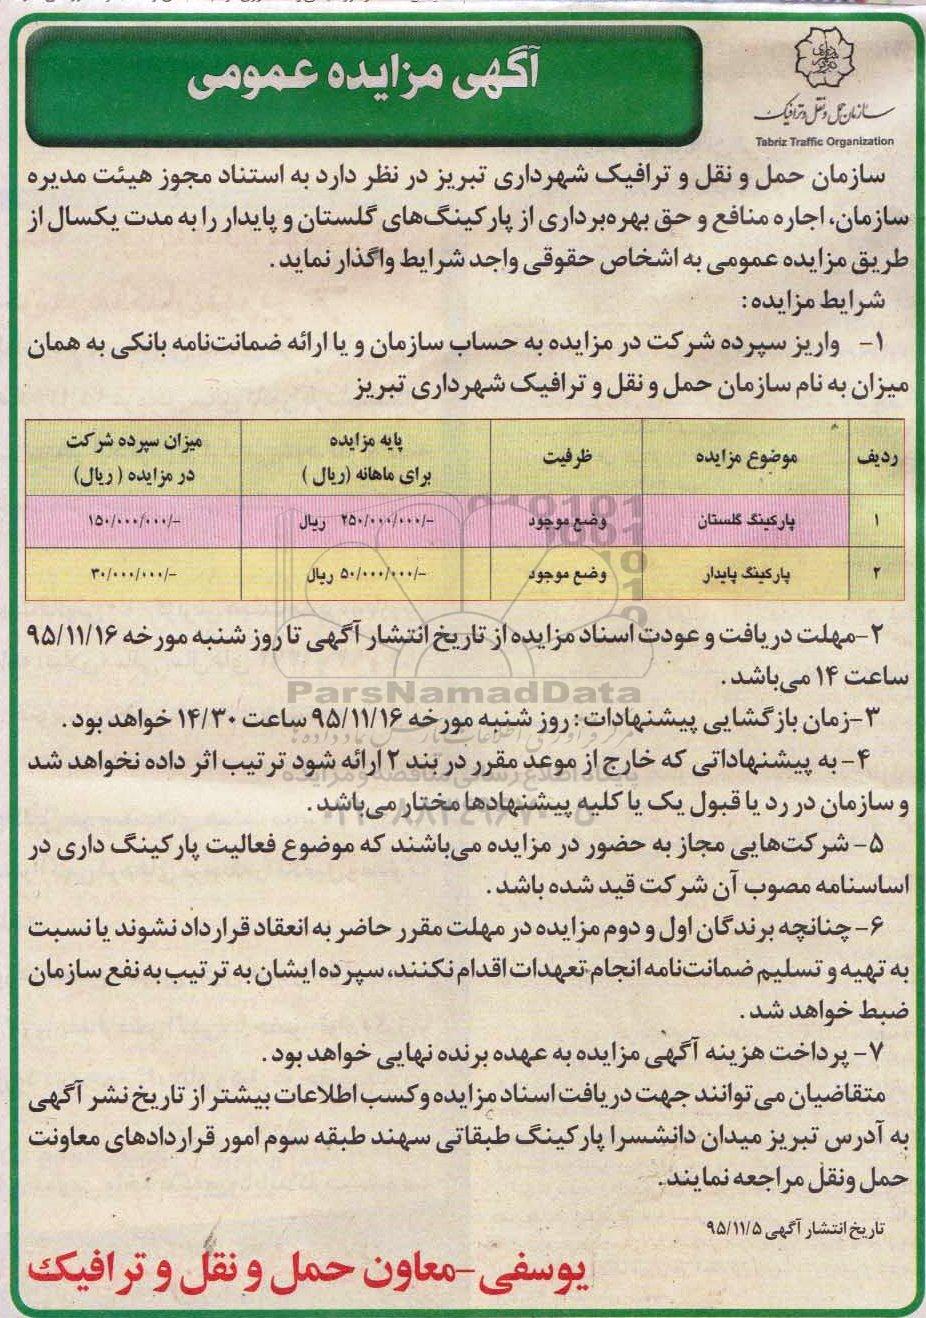 آگهی مزایده عمومی
سازمان حمل و نقل و ترافیک
Tabriz Traffic Organization
سازمان حمل و نقل و ترافیک شهرداری تبریز در نظر دارد به استناد مجوز هیئت مدیره
سازمان، اجاره منافع و حق بهره‌برداری از پارکینگ‌های گلستان و پایدار را به مدت یکسال از
طریق مزایده عمومی به اشخاص حقوقی واجد شرایط واگذار نماید.
شرایط مزایده:
۱- واریز سپرده شرکت در مزایده به حساب سازمان و یا ارائه ضمانت‌نامه بانکی به همان
میزان به نام سازمان حمل و نقل و ترافیک شهرداری تبریز
ردیف موضوع مزایده ظرفیت پایه مزایده برای ماهانه (ریال) میزان سپرده شرکت در مزایده (ریال)
۱ پارکینگ گلستان وضع موجود ۲۵۰/۰۰۰/۰۰۰/- ریال ۱۵۰/۰۰۰/۰۰۰/-
۲ پارکینگ پایدار وضع موجود ۵۰/۰۰۰/۰۰۰/- ریال ۳۰/۰۰۰/۰۰۰/-
۲-مهلت دریافت و عودت اسناد مزایده از تاریخ انتشار آگهی تا روز شنبه مورخه ۹۵/۱۱/۱۶
ساعت ۱۴ می‌باشد.
۳-زمان بازگشایی پیشنهادات: روز شنبه مورخه ۹۵/۱۱/۱۶ ساعت ۱۴/۳۰ خواهد بود.
۴- به پیشنهاداتی که خارج از موعد مقرر در بند ۲ ارائه شود ترتیب اثر داده نخواهد شد
و سازمان در رد یا قبول یک یا کلیه پیشنهادها مختار می‌باشد.
۵- شرکت‌هایی مجاز به حضور در مزایده می‌باشند که موضوع فعالیت پارکینگ داری در
اساسنامه مصوب آن شرکت قید شده باشد.
۶- چنانچه برندگان اول و دوم مزایده در مهلت مقرر حاضر به انعقاد قرارداد نشوند یا نسبت
به تهیه و تسلیم ضمانت‌نامه انجام تعهدات اقدام نکنند، سپرده ایشان به ترتیب به نفع سازمان
ضبط خواهد شد.
۷- پرداخت هزینه آگهی مزایده به عهده برنده نهایی خواهد بود.
متقاضیان می‌توانند جهت دریافت اسناد مزایده و کسب اطلاعات بیشتر از تاریخ نشر آگهی
به آدرس تبریز میدان دانشسرا پارکینگ طبقاتی سهند طبقه سوم امور قراردادهای معاونت
حمل و نقل مراجعه نمایند.
تاریخ انتشار آگهی ۹۵/۱۱/۵
یوسفی-معاون حمل و نقل و ترافیک
ParsNamadData